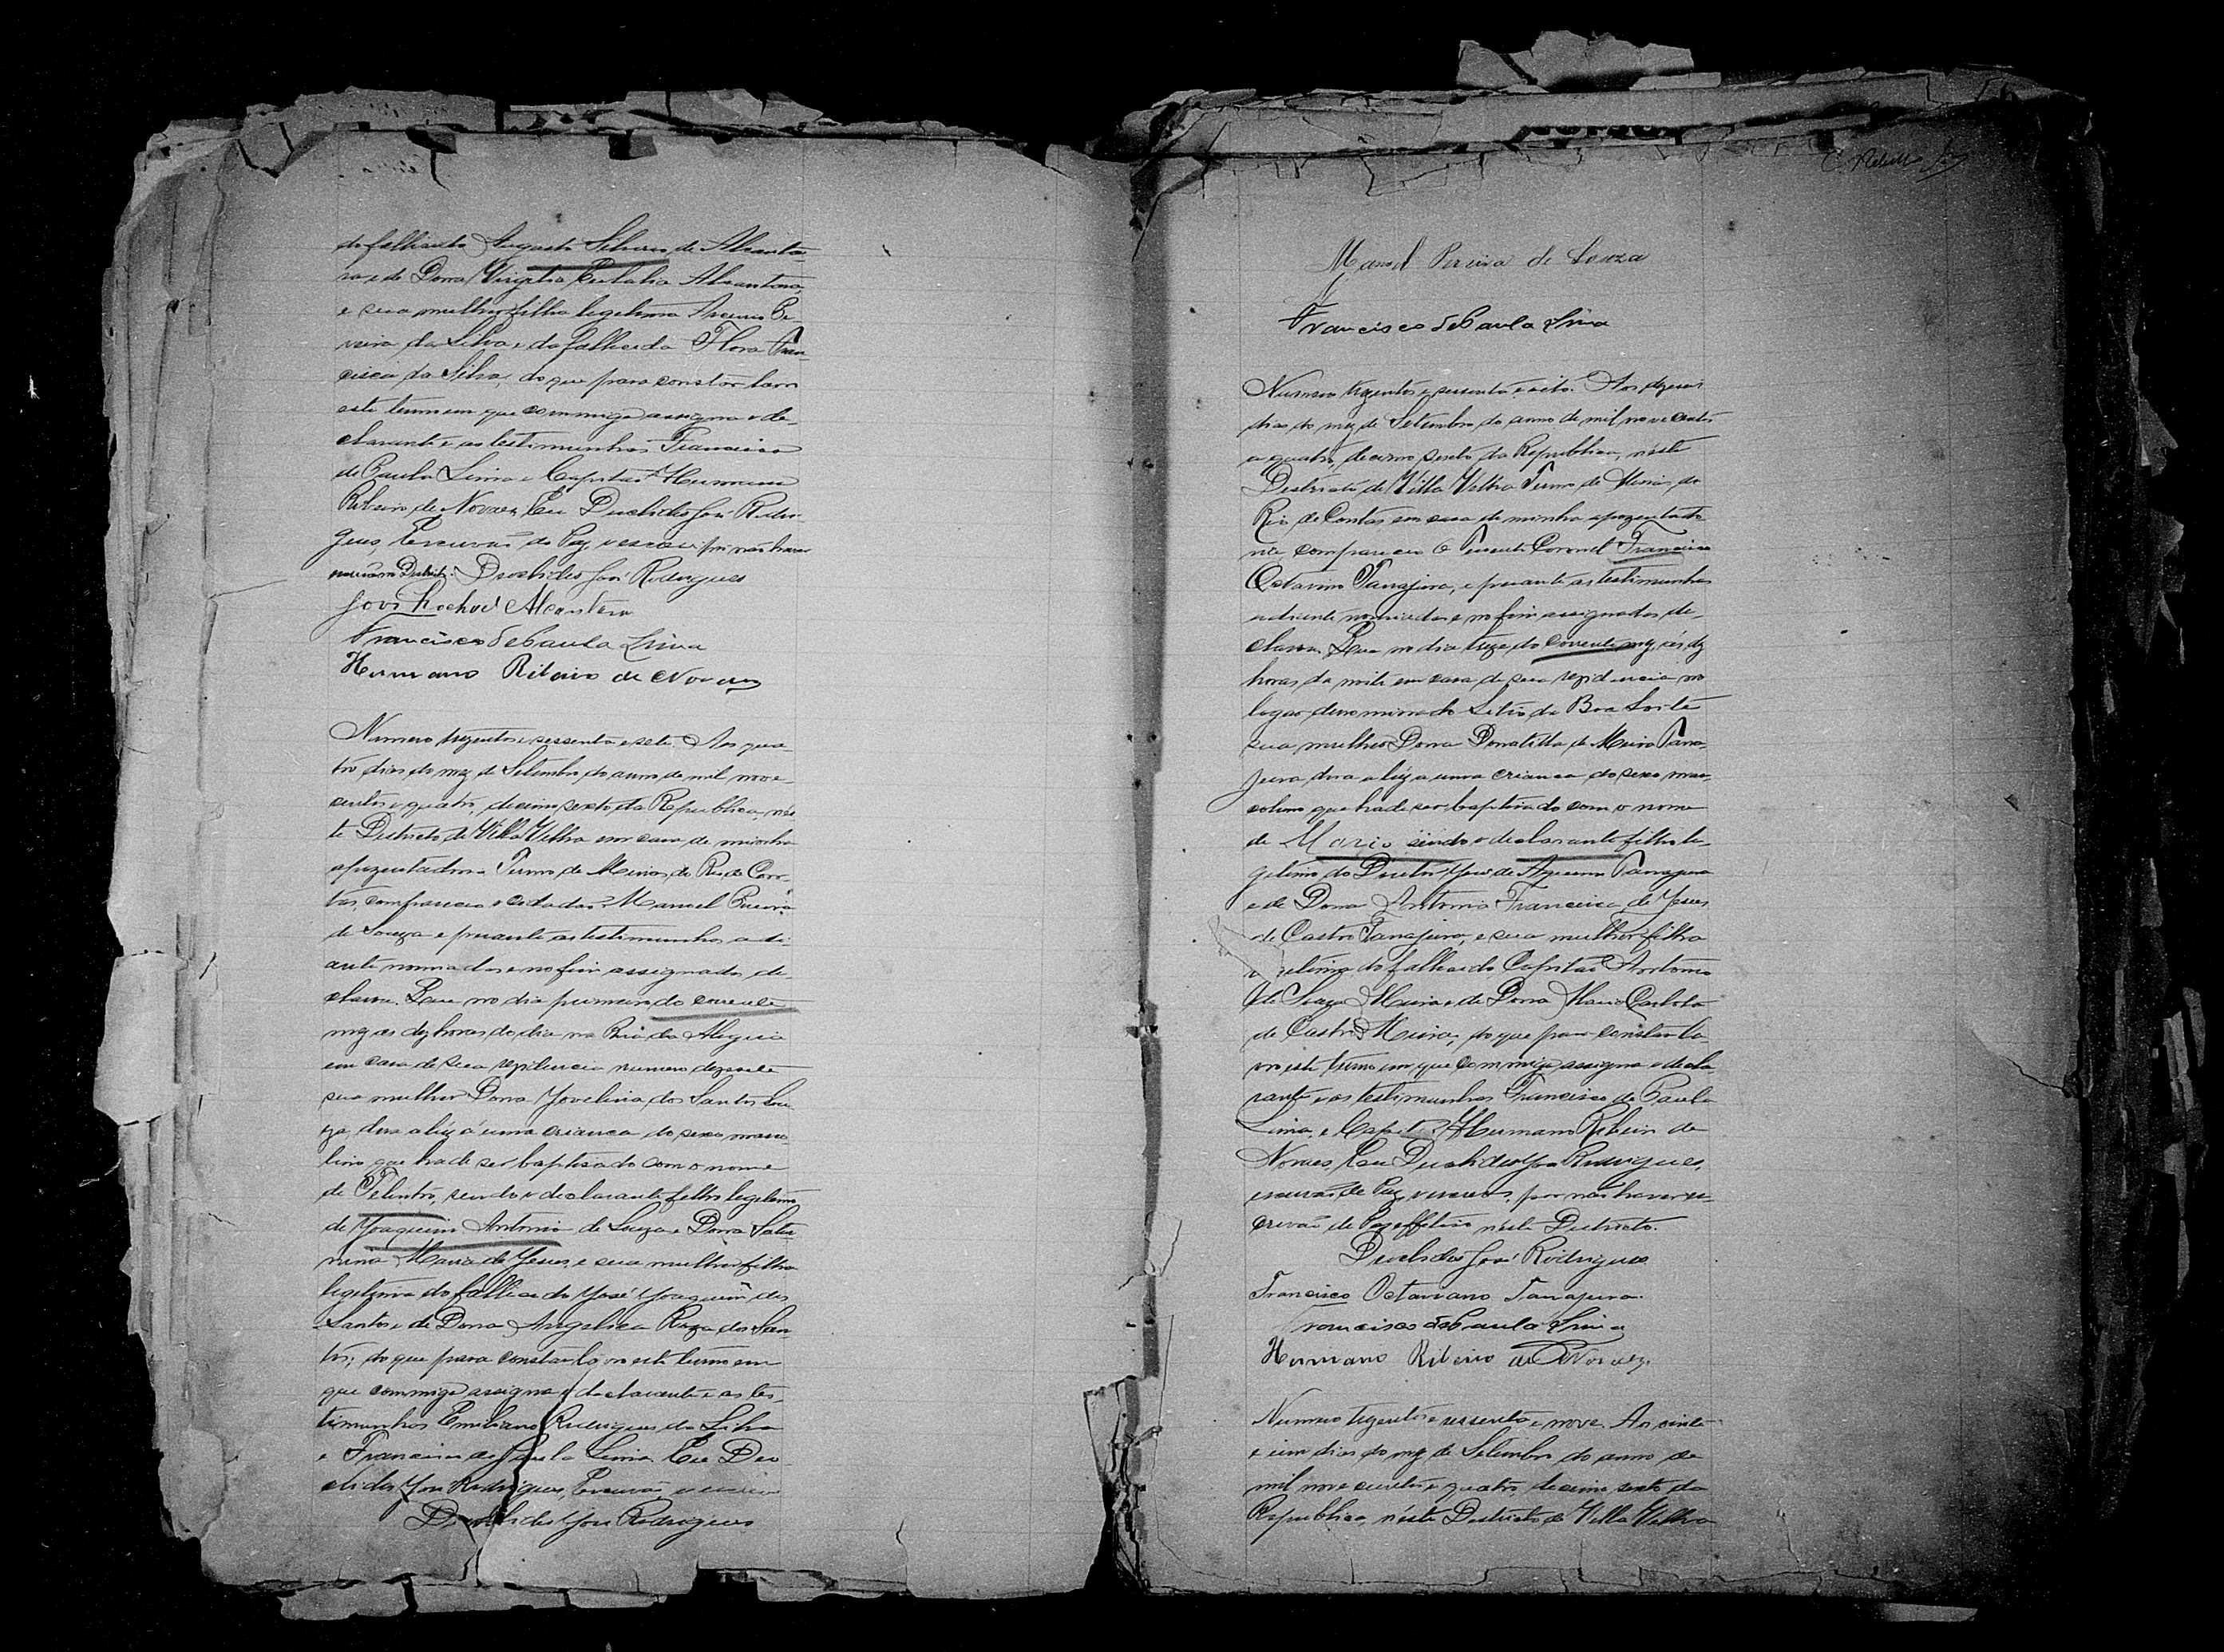 do fallicido Augusto Silverio de Alcanta-
ra e de Dona Virgilia Eulalia Alcantara,
e sua mulher filha legitima Pe-
reira da Silva e da fallecida Flora Fran-
cisca da Silva, do que para constar lavro
este termo em que commigo assigna o de-
clarante e as testimunhas Francisco
de Paula Lima e Capitão Hermano
Ribeiro de Novaes, Eu Duclides José Rodri-
gues, Escrivão de Paz, escrevi por não haver
Duclides José Rodrigues
José Alcantara
Francisco de Paula Lima
Hermano Ribeiro de Novaes
Numero trezentos e sessenta e sete. Aos qua-
tro dias do mez de Setembro do anno de mil nove-
centos e quatro, decimo sexto da Republica, nés-
te Districto de Villa Velha em casa de minha
apozentadoria Termo de Minas do Rio de Con-
tas, compareceo o cidadão Manoel Pereira
de Souza e perante as testimunhas adi-
ante nomiadas e no fim assignadas, de-
clarou. Que no dia primeiro do corrente
mez as dez horas do dia na Rua da Alegria
em casa de sua rezidencia numero dezesete
sua mulher Dona Jovelina dos Santos Sou-
za, dera a luz á uma crianca do sexo mascu
lino que hade ser baptisado com o nome
de Pelintro, sendo o declarante filho legitimo
de Joaquim Antonio de Souza e Dona Satur
nina Maria de Jesus, e sua mulher filha
legitima do fallicido José Joaquim dos
Santos e de Dona Angelica Roza dos San-
tos; do que para constar lavro este termo em
que commigo assigna o declarante e as tes-
timunhas Emiliano Rodrigues da Silva
e Francisco de Paula Lima. Eu Du-
clides José Rodrigues, Escrivão, o escrevi
Duclides José Rodrigues
Manoel Pereira de Souza
Francisco de Paula Lima
Numero trezentos e sessenta e oito. Aos dezeseis
dias do mez de Setembro do anno de mil nove centos
e quatro, decimo sexto da Republica, néste
Districto de Villa Velha Termo de Minas do
Rio de Contas em casa de minha apozentado-
ria compareceo o Tenente Coronel Francisco
Octaviano Tanajura, e perante as testimunhas
adiante nomiadas e no fim assignadas de-
clarou. Que no dia treze do corrente mez, ás dez
horas da noite em casa de sua rezidencia no
logar denominado Sitio da Boa Sorte
sua mulher Dona Donatilla de Meira Tana-
jura dera a luz a uma crianca do sexo mas-
colino que hade ser baptisado com o nome
de Mario sendo o declarante filho le-
gitimo do Doutor José de Aquino Tanajura
e de Dona Antonia Francisca de Jesus
de Castro Tanajura, e sua mulher filha
legitima do fallicido Capitão Antonio
de Souza Meira e de Dona Maria Carlota
de Castro Meira; do que para constar la-
vro este termo em que commigo assigna o decla-
rante e as testimunhas Francisco de Paula
Lima, e Capitão Hermano Ribeiro de
Novaes, Eu Duclides José Rodrigues,
escrivão de Paz, o escrevi, por não haver es-
crivão de Paz effetivo néste Districto.
Duclides José Rodrigues
Francisco Octaviano Tanajura
Francisco de Paula Lima
Hermano Ribeiro de Novaes
Numero trezentos e sessenta e nove. Aos vinte
e um dias do mez de Setembro do anno de
mil nove centos e quatro, decimo sexto da
Republica, néste Districto de Villa Velha